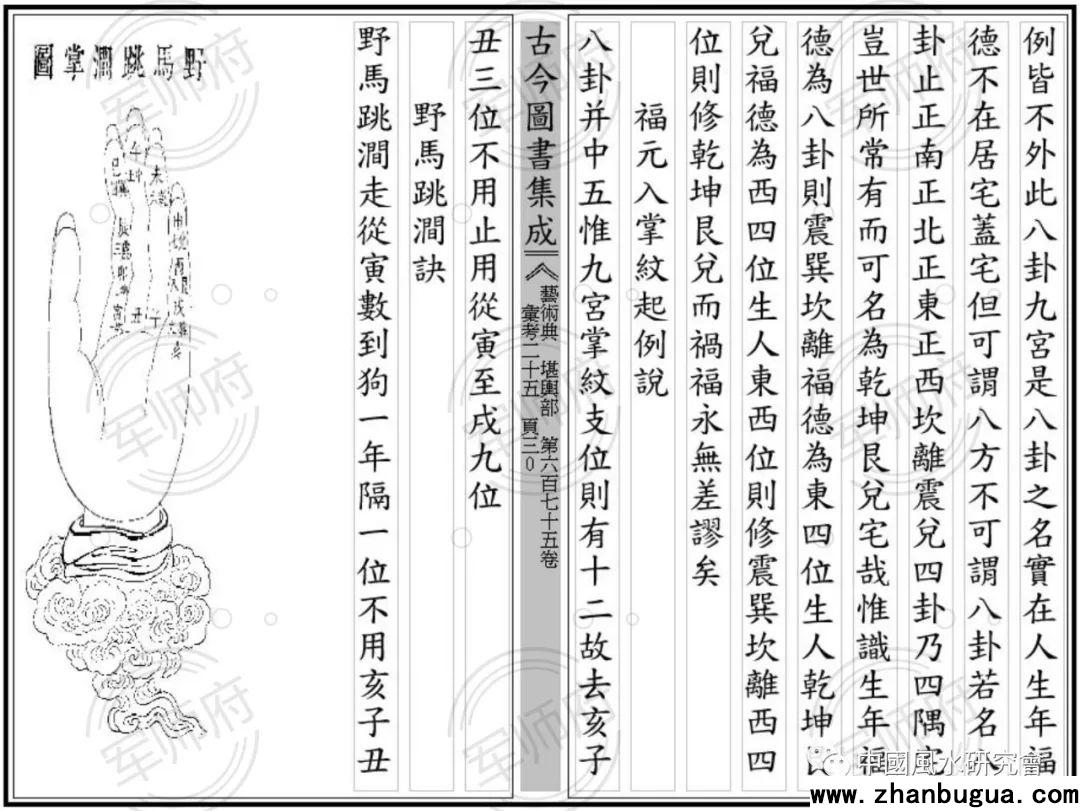 例皆不外此八卦九宮是八卦之名實在人生年福
德不在居宅蓋宅但可謂八方不可謂八卦若名八
卦止正南正北正東正西坎離震兌四卦乃四隅宅
豈世所常有而可名為乾坤艮兌宅哉惟識生年福
德為八卦則震巽坎離福德為東四位生人乾坤艮
兌福德為西四位生人東西位則修震巽坎離西四
位則修乾坤艮兌而禍福永無差謬矣
福元入掌紋起例說
八卦并中五惟九宮掌紋支位則有十二故去亥子
古今圖書集成
藝術典 堪輿部 第六百七十五卷
彙考二十五 頁三0
丑三位不用止用從寅至戌九位
野馬跳澗訣
野馬跳澗走從寅數到狗一年隔一位不用亥子丑
野馬跳澗掌圖
午
未
巳
申
辰
酉
卯
戌
寅
丑
子
军师府
中國風水研究會
www.zhanbugua.com